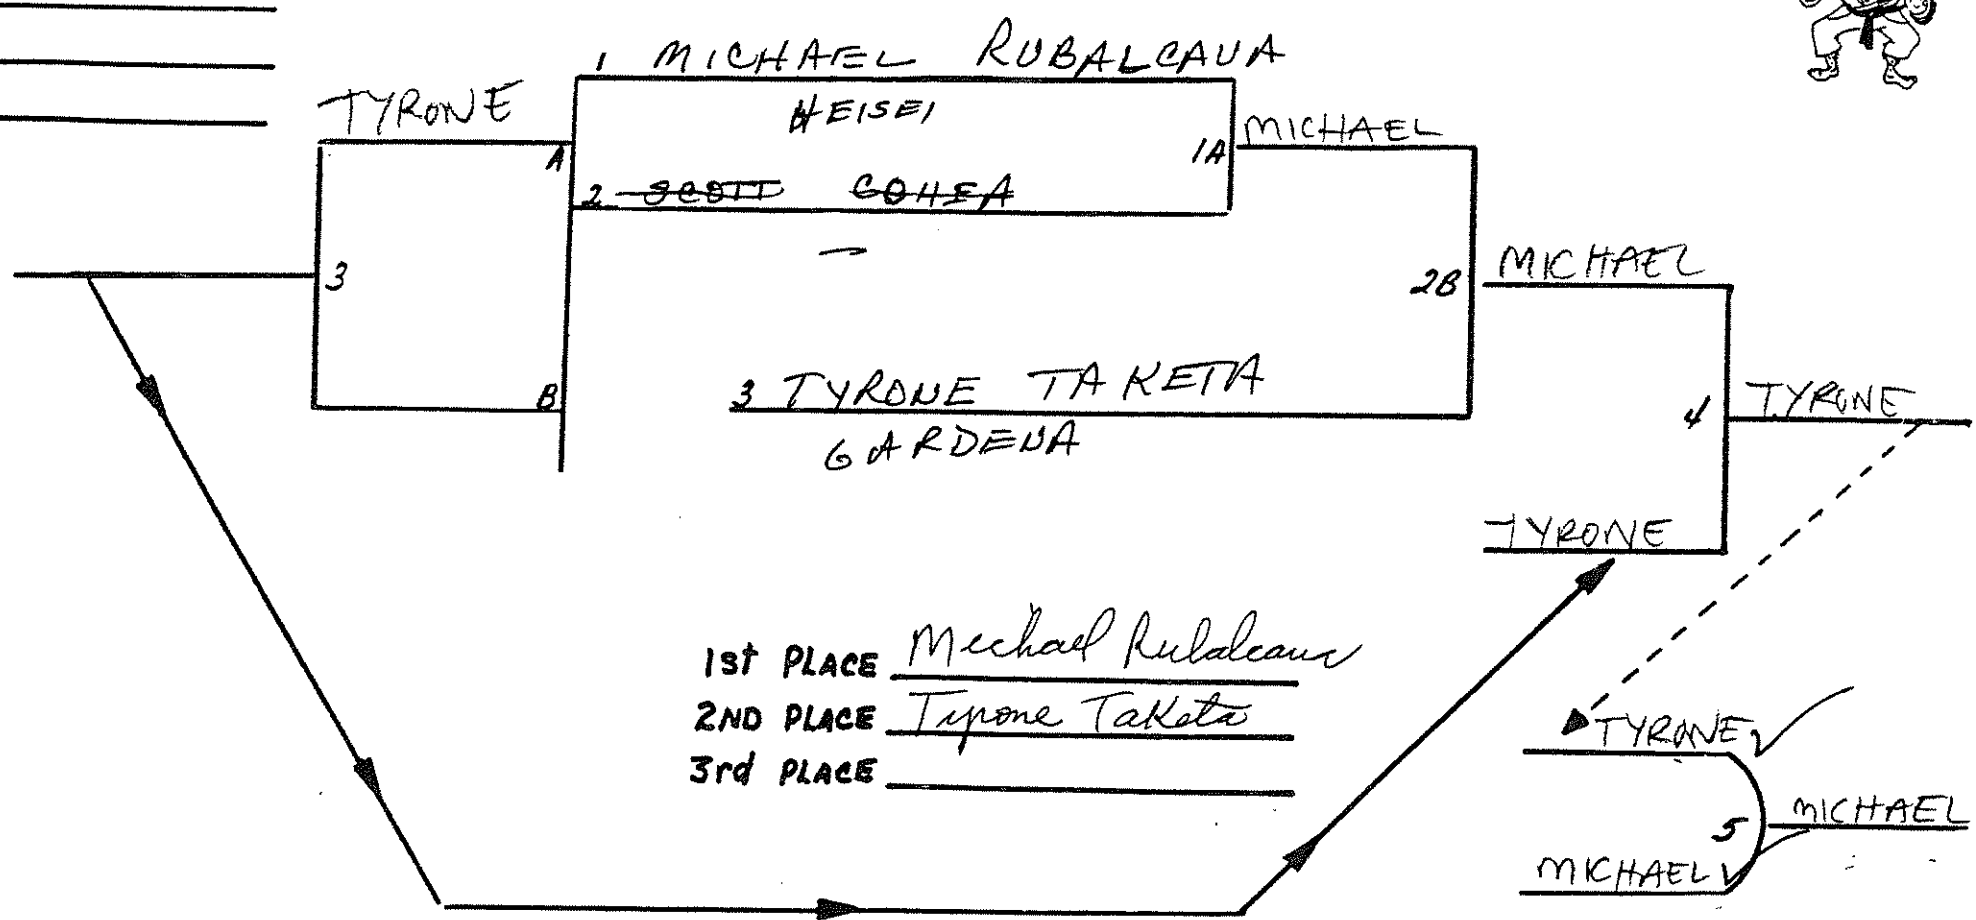 1 MICHAEL RUBALCAUA
HEISEI
TYRONE
A
1A
MICHAEL
2 SCOTT COHEA
—
3
2B
MICHAEL
B
3 TYRONE TAKETA
GARDENA
4
TYRONE
TYRONE
1st PLACE Michael Rubalcaua
2ND PLACE Tyrone Taketa
3rd PLACE
TYRONE ✓
5
MICHAEL
MICHAEL ✓